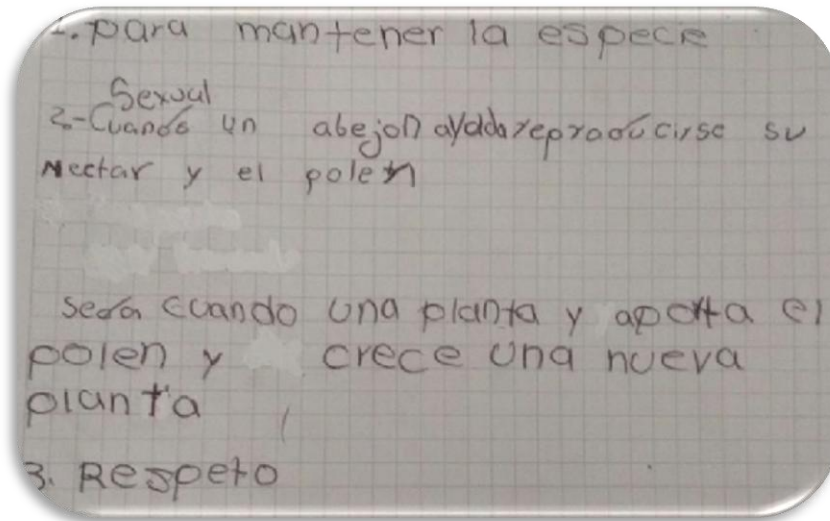 1. para mantener la especie
Sexual
2.-Cuando un abejon ayuda reproducirse su
Nectar y el polen
cuando una planta y aporta el
polen y crece una nueva
planta
3. Respeto